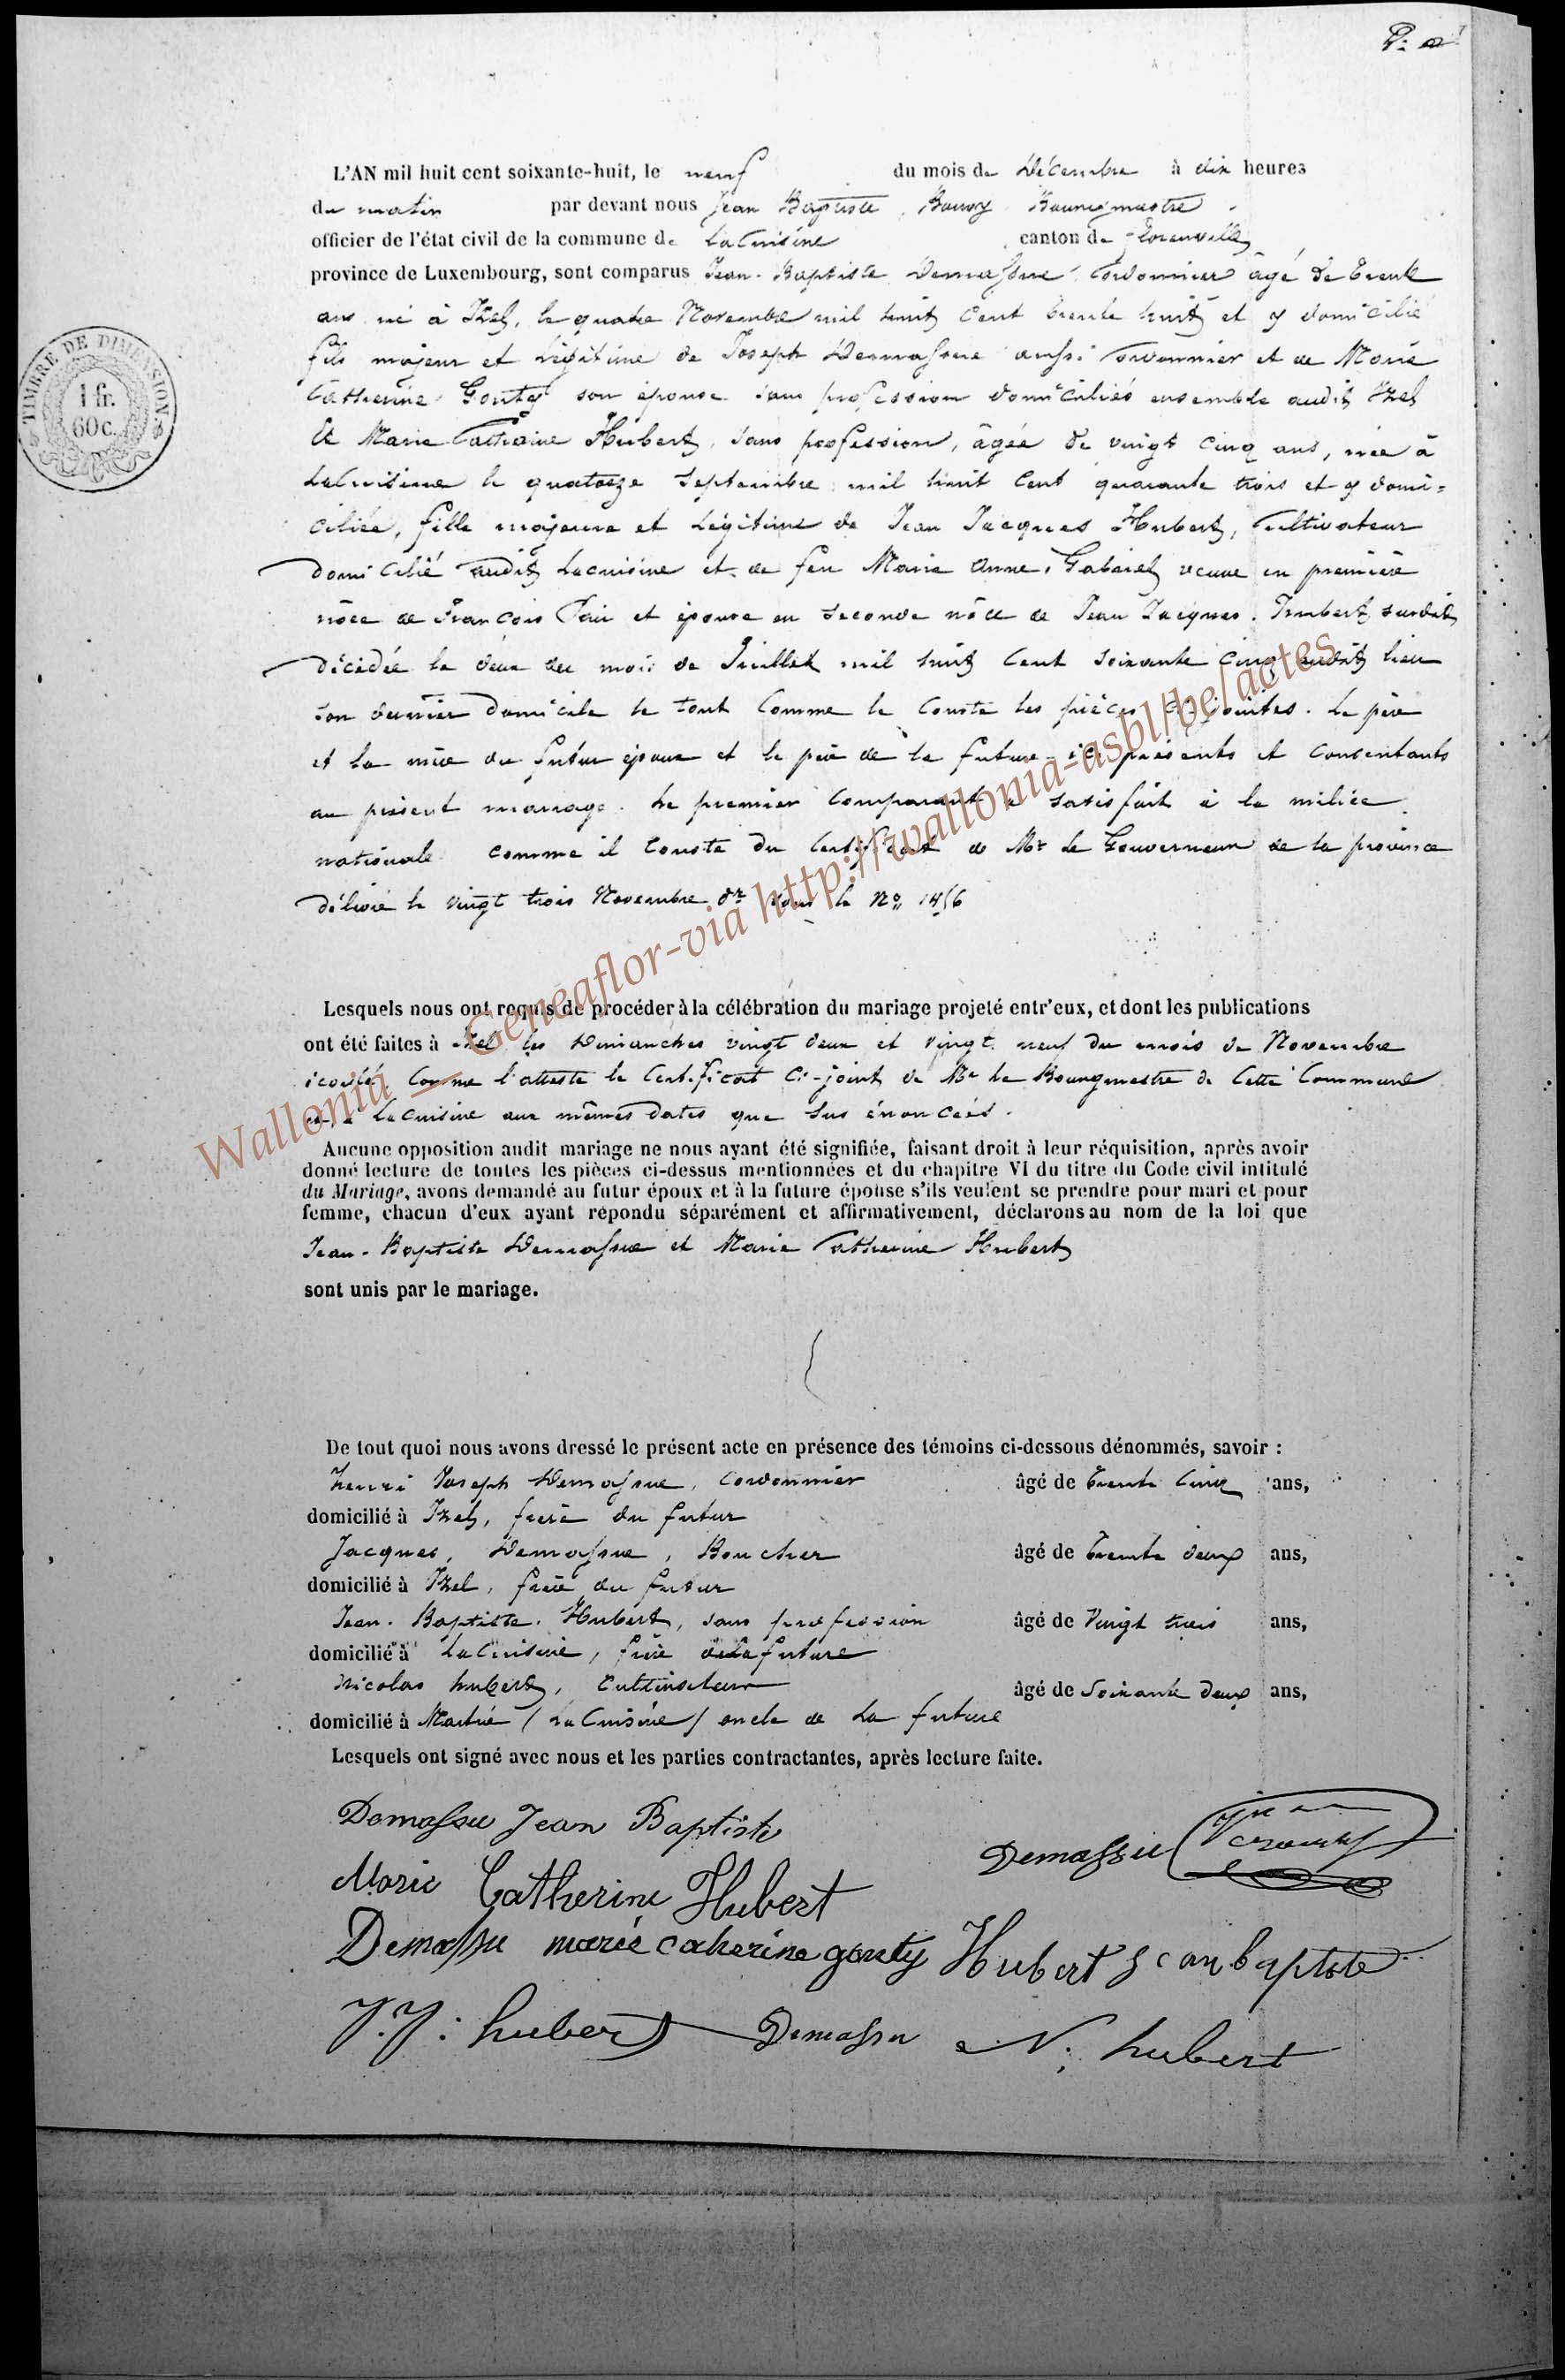 L'AN mil huit cent soixante-huit, le neuf du mois de Décembre à dix heures
du matin par devant nous Jean Baptiste Bourgmestre
officier de l'état civil de la commune de LaCuisine canton de Florenville
province de Luxembourg, sont comparus Jean-Baptiste Demassue Cordonnier âgé de trente
ans né à Izel, le quatre Novembre mil huit Cent trente huit et y domicilié
fils majeur et légitime de Joseph Demassue aussi Cordonnier et de Marie
Catherine Gouty son épouse sans profession domiciliés ensemble audit Izel
Et Marie Catherine Hubert, sans profession, âgée de vingt cinq ans, née à
LaCuisine le quatorze Septembre mil huit Cent quarante trois et y domi=
ciliée, fille majeure et légitime de Jean Jacques Hubert, Cultivateur
domicilié audit Lacuisine et de feu Marie Anne Gabriel veuve en première
nôce de François et épouse en seconde nôce de Jean Jacques Hubert susdit
décédée le deux du mois de Juillet mil huit Cent soixante cinq audit lieu
son dernier domicile le tout Comme le Conste les pièces ci-jointes. Le père
et la mère du futur époux et le père de la future ici présents et consentants
au présent mariage. Le premier Comparant a satisfait à la milice
nationale comme il Conste du Certificat de Mr Le Gouverneur de la province
délivré le vingt trois Novembre dr sous le No 1456
Lesquels nous ont requis de procéder à la célébration du mariage projeté entr'eux, et dont les publications
ont été faites à Izel les Dimanches vingt deux et vingt neuf du mois de Novembre
écoulé Comme l'atteste le Certificat Ci-joint de Mr le Bourgmestre de Cette Commune
et à Lacuisine aux mêmes dates que sus énoncées.
Aucune opposition audit mariage ne nous ayant été signifiée, faisant droit à leur réquisition, après avoir
donné lecture de toutes les pièces ci-dessus mentionnées et du chapitre VI du titre du Code civil intitulé
du Mariage, avons demandé au futur époux et à la future épouse s'ils veulent se prendre pour mari et pour
femme, chacun d'eux ayant répondu séparément et affirmativement, déclarons au nom de la loi que
Jean-Baptiste Demassue et Marie Catherine Hubert
sont unis par le mariage.
De tout quoi nous avons dressé le présent acte en présence des témoins ci-dessous dénommés, savoir :
henri Joseph Demassue, Cordonnier âgé de trente Cinq ans,
domicilié à Izel, frère du futur
Jacques, Demassue, Boucher âgé de trente deux ans,
domicilié à Izel, frère du futur
Jean-Baptiste Hubert, sans profession âgé de Vingt trois ans,
domicilié à LaCuisine, frère de la future
Nicolas hubert, Cultivateur âgé de Soixante deux ans,
domicilié à Martué (LaCuisine) oncle de La future
Lesquels ont signé avec nous et les parties contractantes, après lecture faite.
Demassue Jean Baptiste
Demassue
Marie Catherine Hubert
Demassue marie caherine gouty Hubert jean baptiste
J. J. hubert Demassu N. hubert
TIMBRE DE DIMENSION
1 fr.
60c.
Wallonia - Geneaflor-via http://wallonia-asbl/be/actes